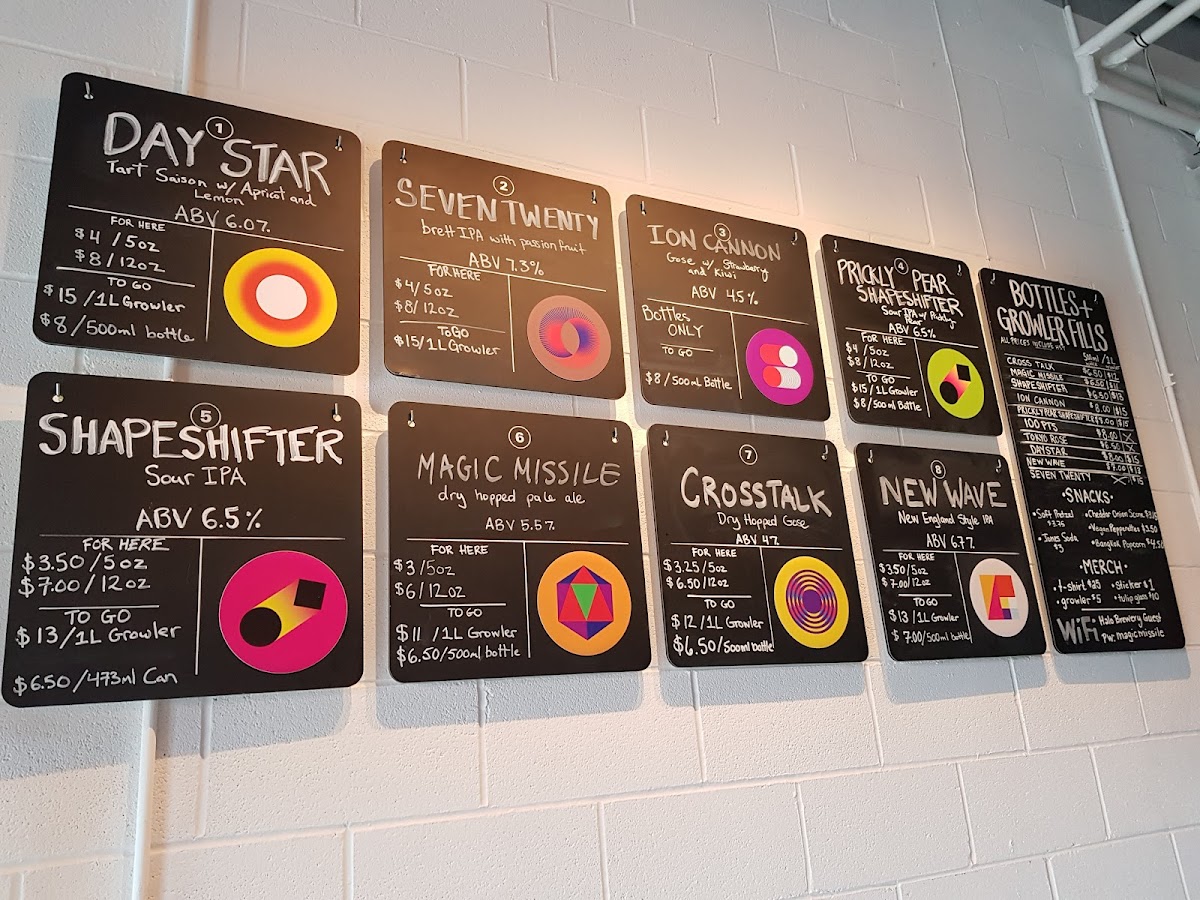 1
DAY STAR
Tart Saison w/ Apricot and
Lemon
ABV 6.0%
FOR HERE
$4 / 5oz
$8 / 12oz
TO GO
$15 / 1L Growler
$8 / 500ml bottle
2
SEVEN TWENTY
brett IPA with passionfruit
ABV 7.3%
FOR HERE
$4 / 5oz
$8 / 12oz
To Go
$15 / 1L Growler
3
ION CANNON
Gose w/ Strawberry
and Kiwi
ABV 4.5%
Bottles
ONLY
TO GO
$8 / 500ml Bottle
4
PRICKLY PEAR
SHAPESHIFTER
Sour IPA w/ Prickly
Pear
ABV 6.5%
FOR HERE
$4 / 5oz
$8 / 12oz
TO GO
$15 / 1L Growler
$8 / 500ml Bottle
5
SHAPESHIFTER
Sour IPA
ABV 6.5%
FOR HERE
$3.50 / 5oz
$7.00 / 12oz
TO GO
$13 / 1L Growler
$6.50 / 473ml Can
6
MAGIC MISSILE
dry hopped pale ale
ABV 5.5%
FOR HERE
$3 / 5oz
$6 / 12oz
TO GO
$11 / 1L Growler
$6.50 / 500ml bottle
7
CROSSTALK
Dry Hopped Gose
ABV 4%
FOR HERE
$3.25 / 5oz
$6.50 / 12oz
TO GO
$12 / 1L Growler
$6.50 / 500ml bottle
8
NEW WAVE
New England Style IPA
ABV 6.7%
FOR HERE
$3.50 / 5oz
$7.00 / 12oz
TO GO
$13 / 1L Growler
$7.00 / 500ml bottle
BOTTLES +
GROWLER FILLS
ALL PRICES INCLUDE
500ml / 1L
CROSS TALK
MAGIC MISSILE $6.50 $11
SHAPESHIFTER $6.50 $13
ION CANNON $8.00 $15
PRICKLY PEAR SHAPESHIFTER $8.00 $15
100 PTS $8.00 X
TOKYO ROSE X
DAYSTAR $8.00 $15
NEW WAVE $13
SEVEN TWENTY $15
• SNACKS •
• Soft Pretzel $3.75
• Cheddar Onion Scone
• Vegan Pepperettes $2.50
• Jones Soda $3
• Bangkok Popcorn $4.50
• MERCH •
• t-shirt $25 • Sticker $1
• growler $5 • tulip glass $10
WiFi Halo Brewery Guest
Pw: magicmissile